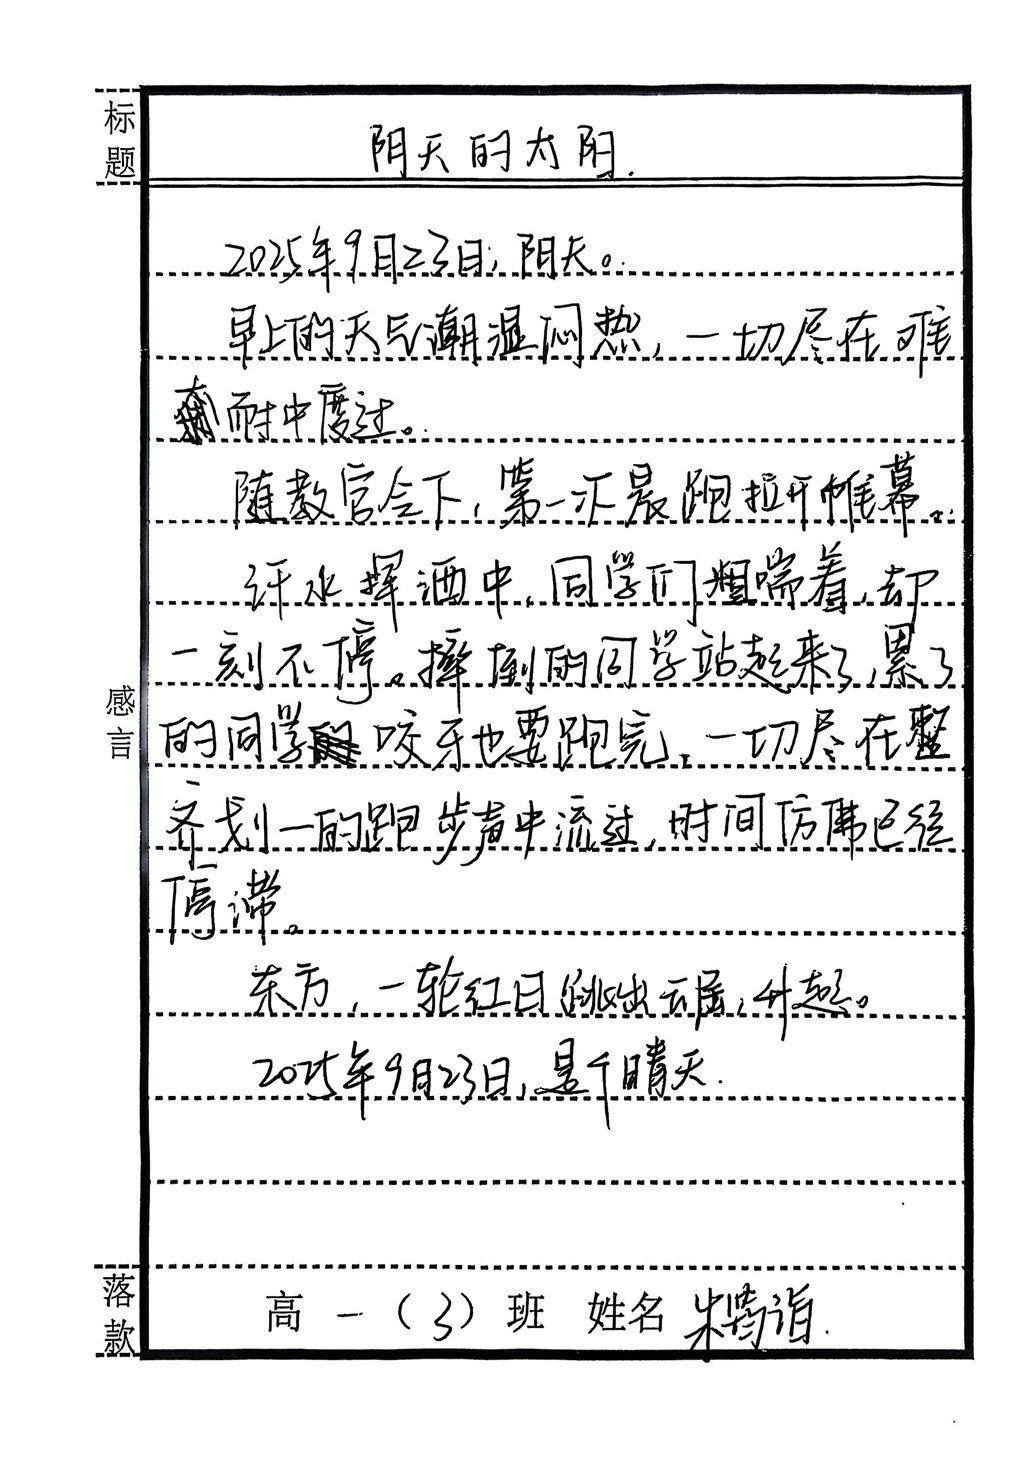 标题
阴天的太阳.
2025年9月23日,阴天。
早上的天气潮湿闷热,一切尽在难
耐中度过。
随教官令下,第一次晨跑拉开帷幕。
汗水挥洒中,同学们粗喘着,却
一刻不停。摔倒的同学站起来了,累了
的同学咬牙也要跑完,一切尽在整
齐划一的跑步声中流过,时间仿佛已经
停滞。
感言
东方,一轮红日跳出云层,升起。
2025年9月23日,是个晴天.
落款
高一(3)班 姓名 朱筠诣.